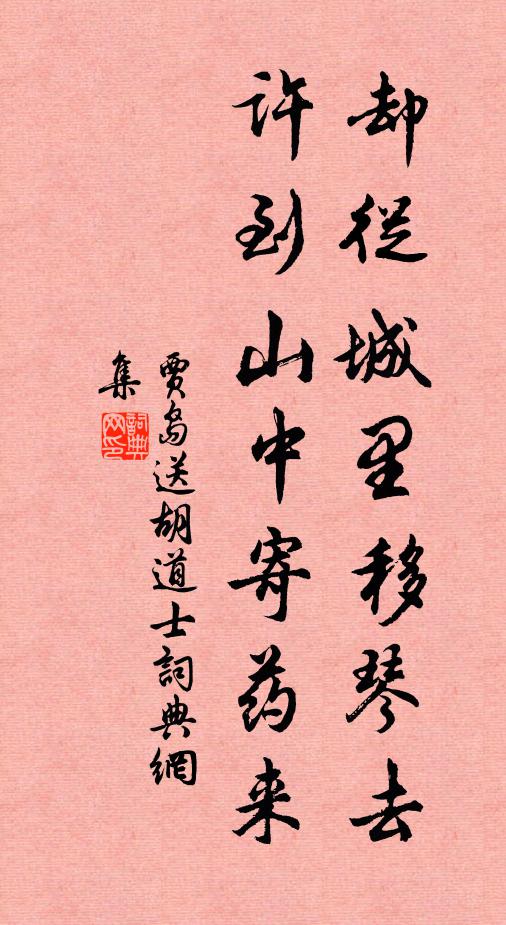 却從城里移琴去
许到山中寄药来
賈島送胡道士詞典網
集
詞典
网印